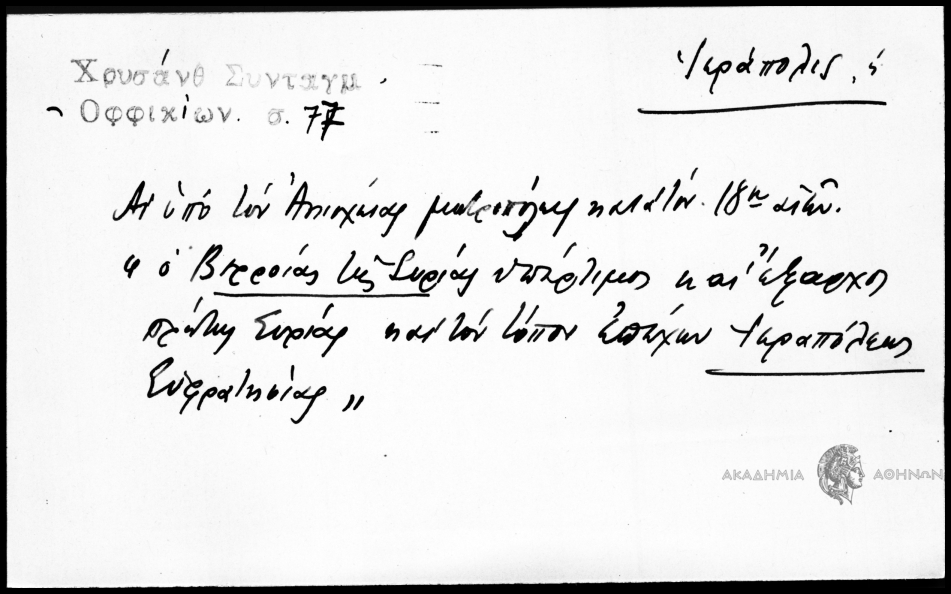 Χρυσάνθ Συνταγμ.
Οφφικίων. σ. 77
Ἱεράπολις, ἡ
Αἱ ὑπὸ τὸν Ἀντιοχείας μητροπόλεις κατὰ τὸν 18ον αἰῶν.
"ὁ Βερροίας τῆς Συρίας ὑπέρτιμος καὶ ἔξαρχος
πρώτης Συρίας καὶ τὸν τόπον ἐπέχων Ἱεραπόλεως
Εὐφρατησίας"
ΑΚΑΔΗΜΙΑ ΑΘΗΝΩΝ